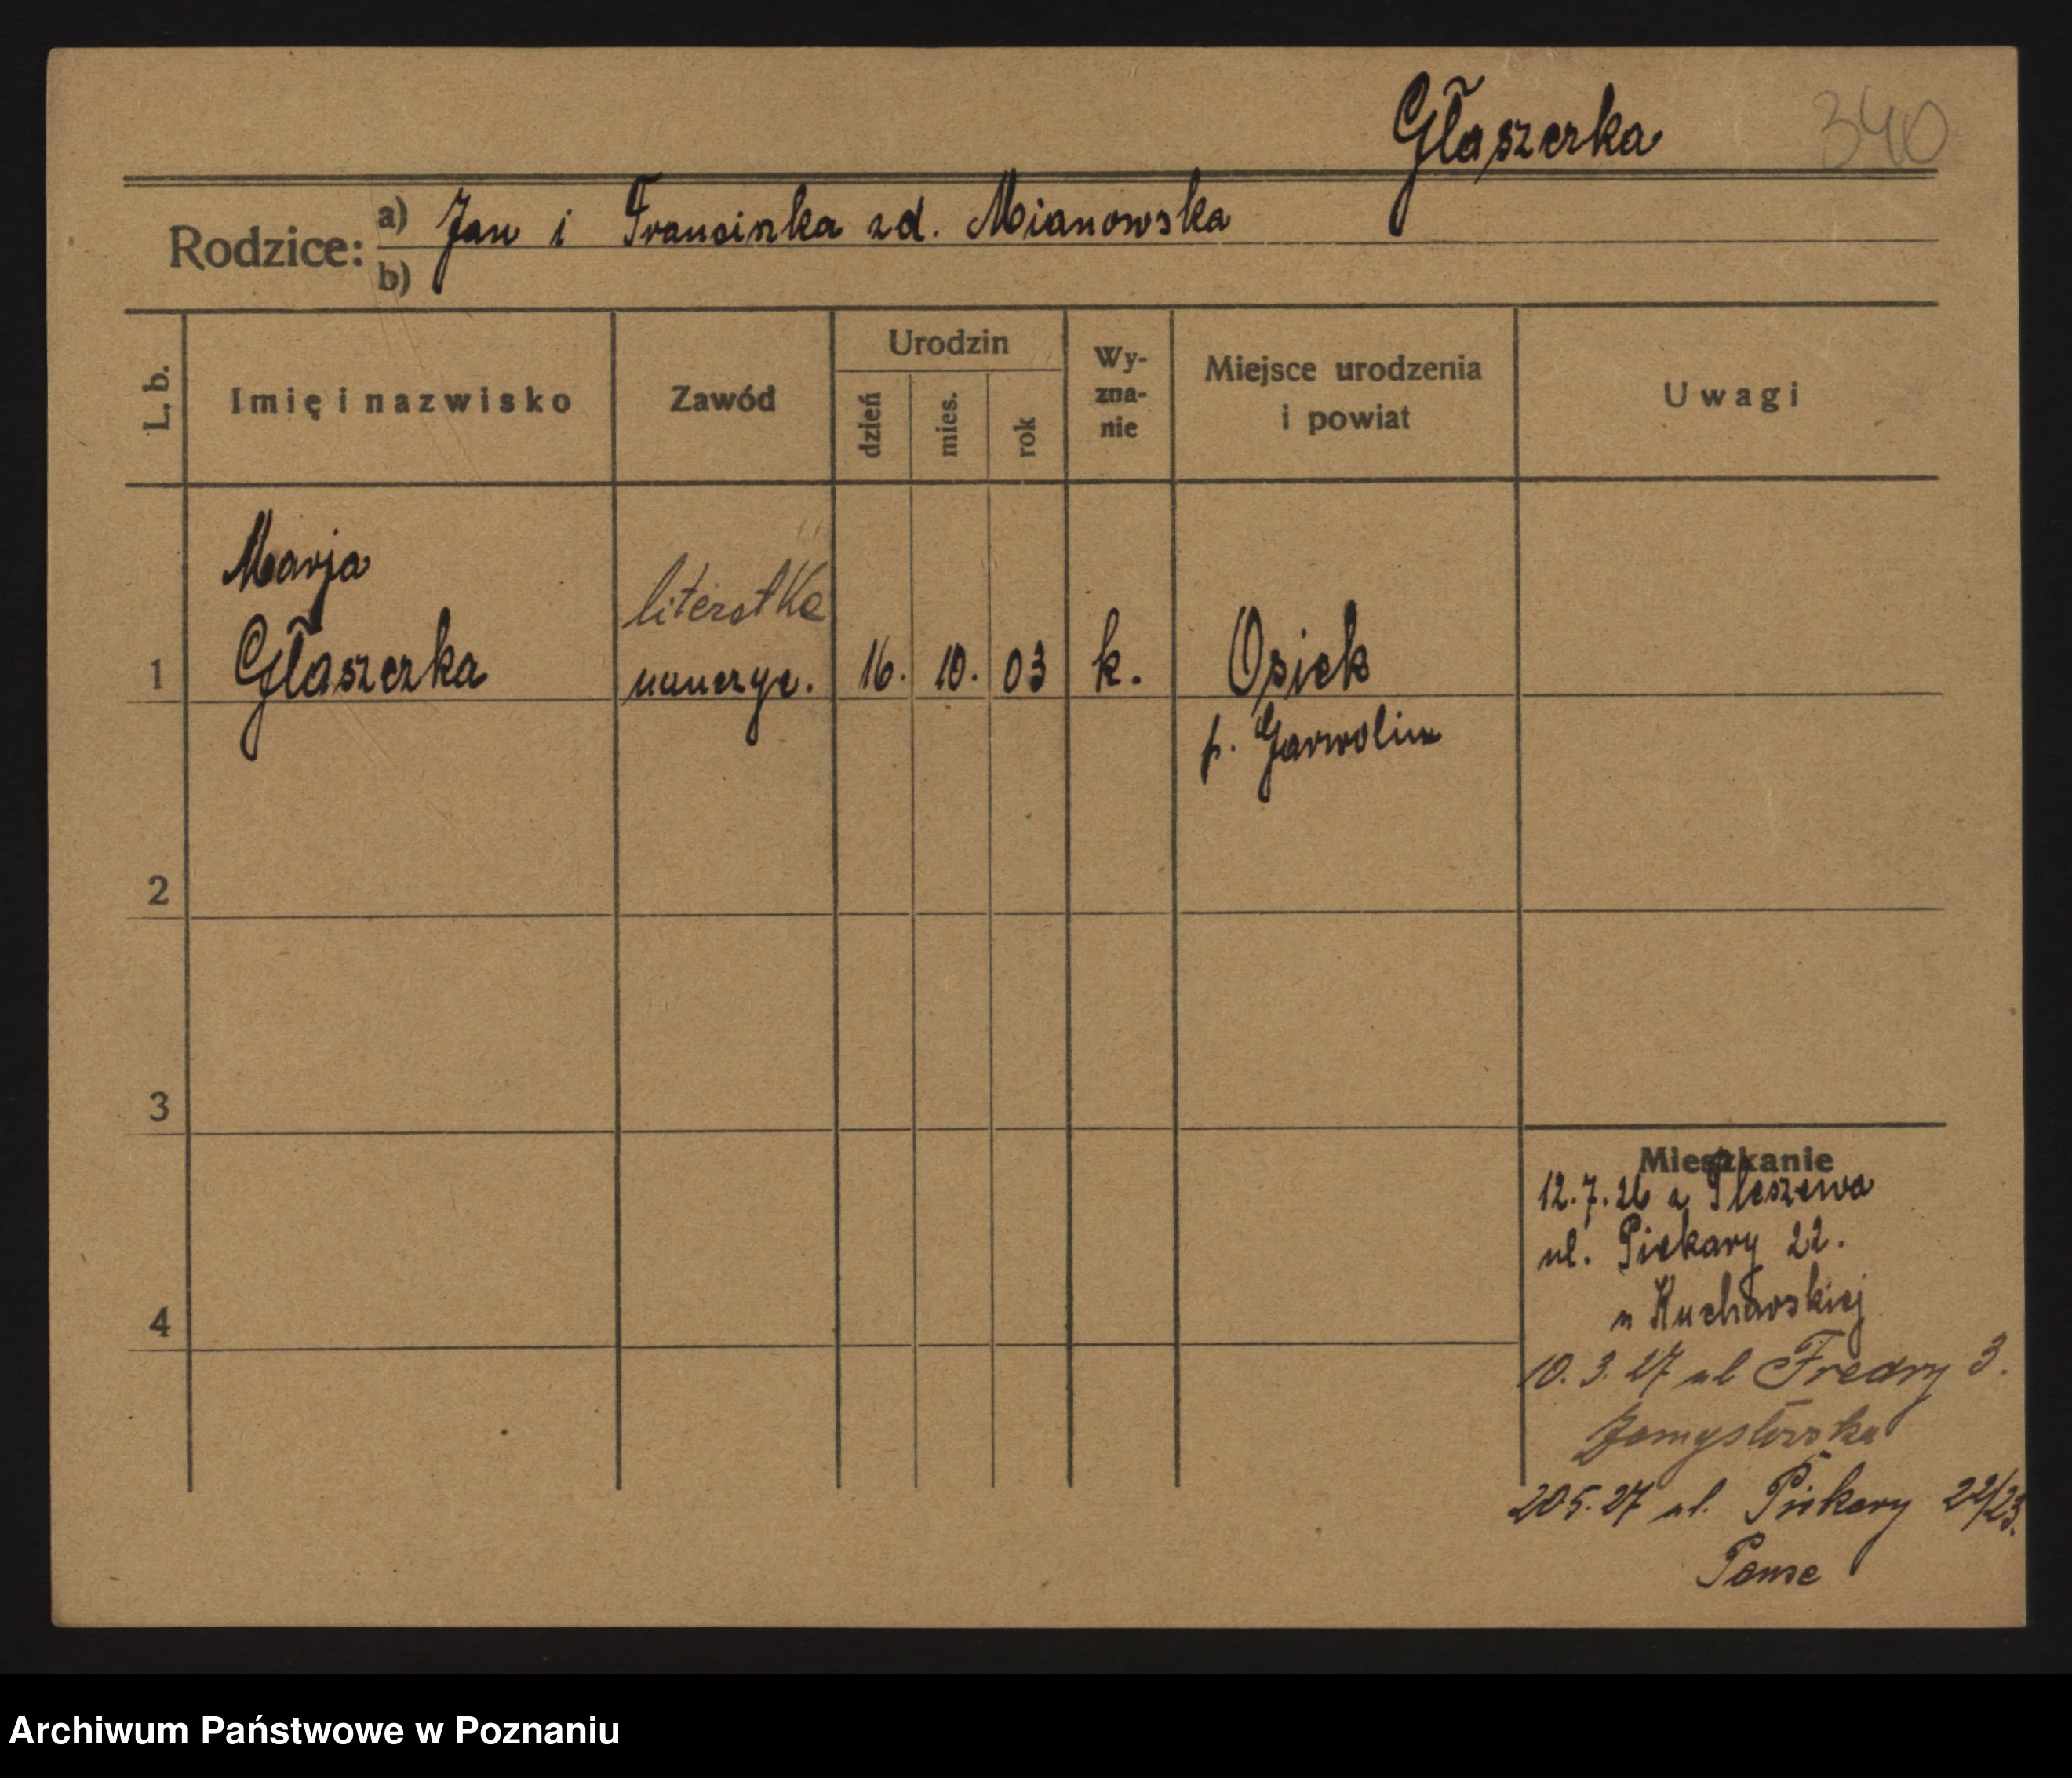 Głaszczka
340
Rodzice:
a) Jan i Franciszka zd. Mianowska
b)
L. b.
Imię i nazwisko
Zawód
Urodzin
dzień
mies.
rok
Wy-
zna-
nie
Miejsce urodzenia
i powiat
Uwagi
Marja
literatka
1 Głaszczka nauczyc. 16. 10. 03 k. Osiek
p. Garwolin
2
3
4
Mieszkanie
12.7.26 z Pleszewa
ul. Piekary 22.
u Kucharskiej
10.3.27 ul Fredry 3.
Zamysłowska
20.5.27 ul. Piekary 22/23.